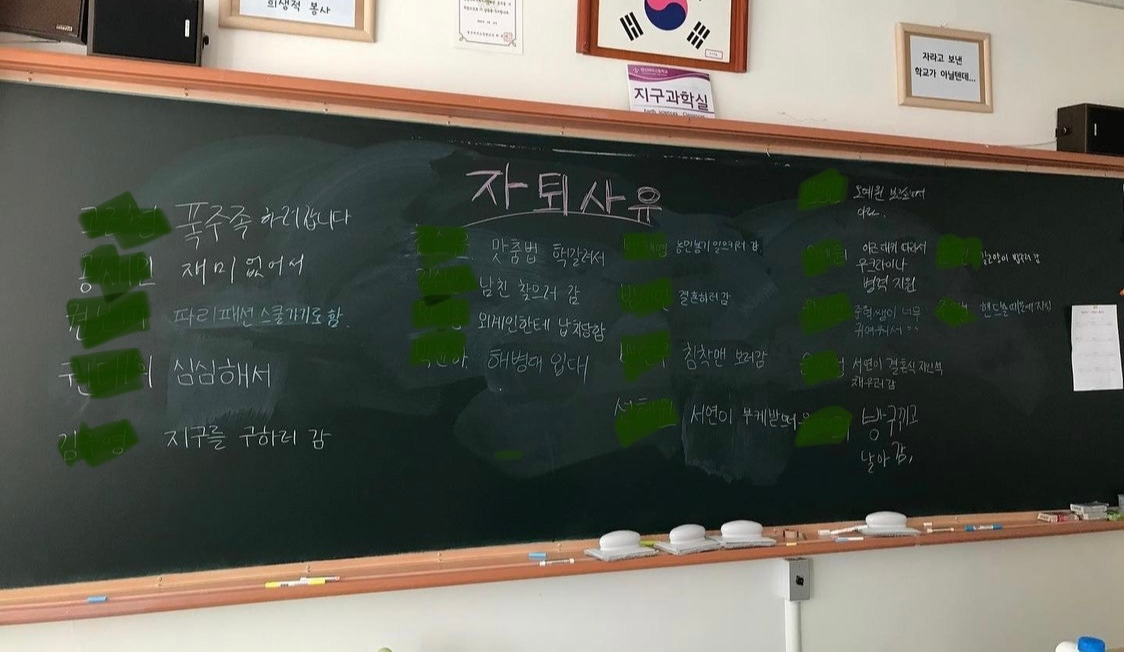 희생적 봉사
지구과학실
자라고 보낸
학교가 아닐텐데...
자퇴사유
폭주족 하러갑니다
재미없어서
파리 패션스쿨가기로함.
심심해서
지구를 구하러 감
맞춤법 헉갈려서
남친 찾으러 감
외계인한테 납치당함
해병대 입대
농민봉기 일으키러 감
결혼하러감
침착맨 보러감
서연이 부케받
오예원 보
이근대위 따라서
우크라이나
병력 지원
너무
귀여워서
서연이 결혼식 지인석
채우러감
방구끼고
날아감,
핸드볼 때문에